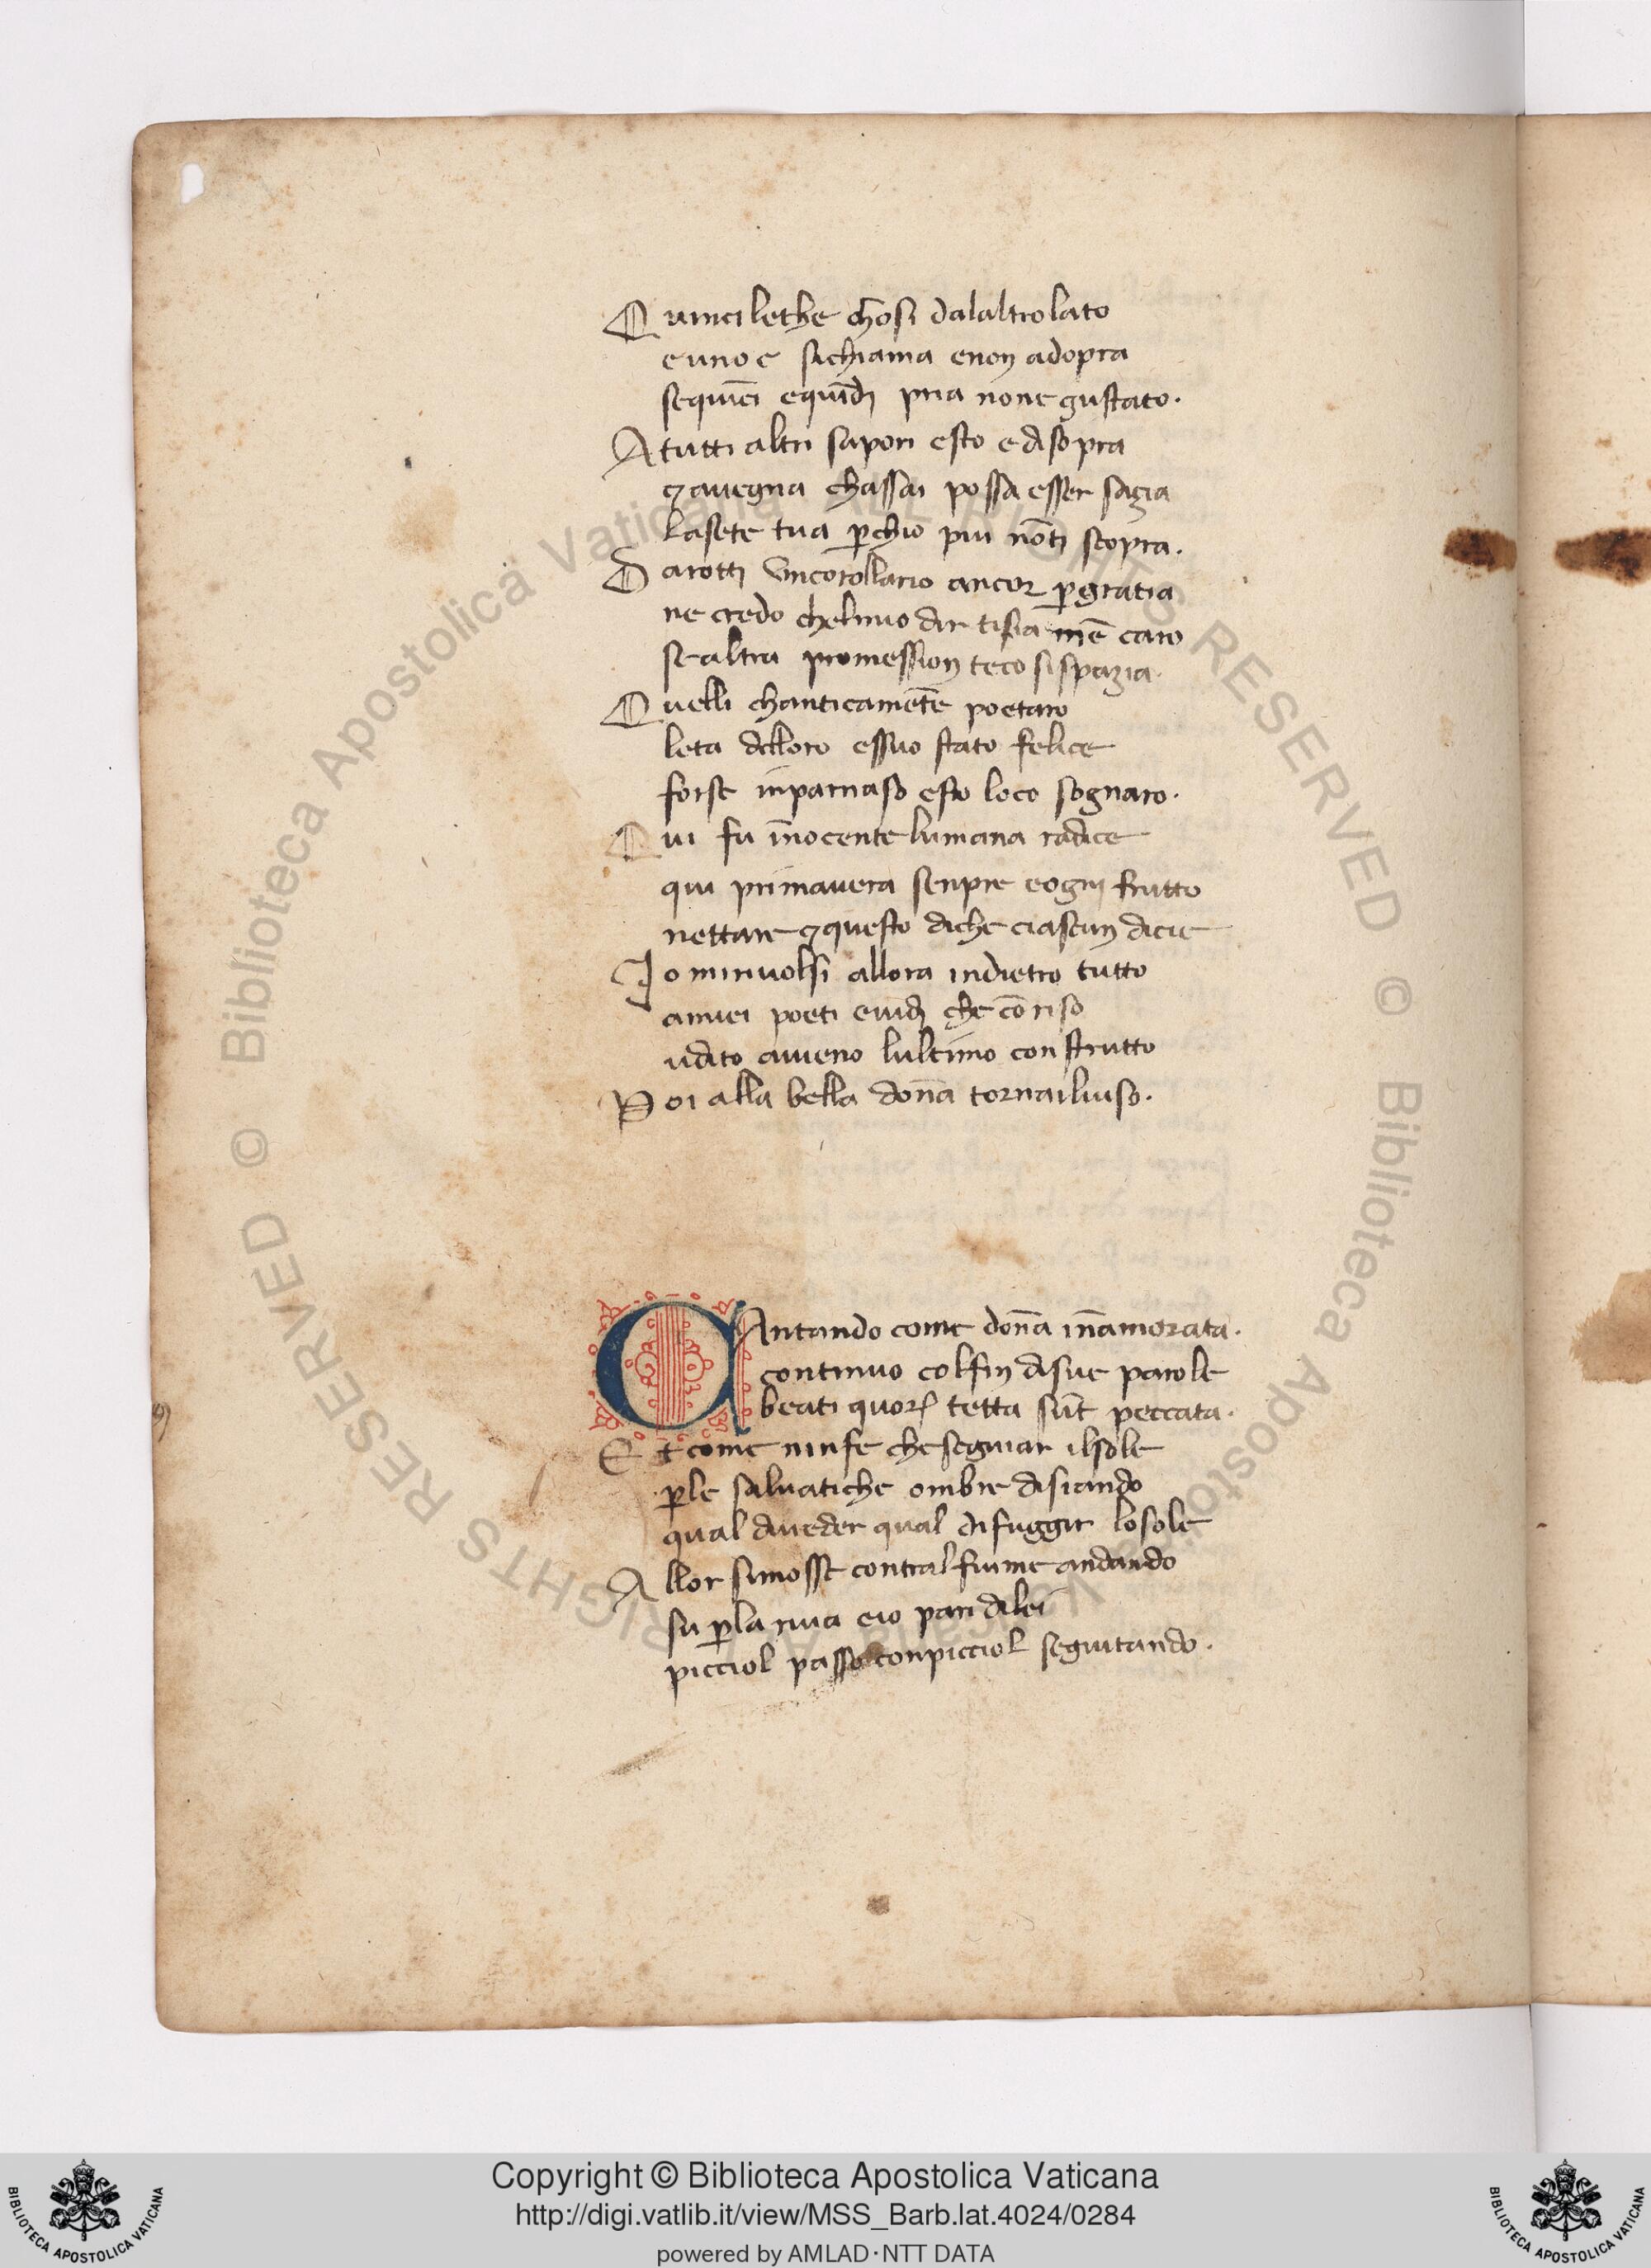 Quinci lethe chosi dalaltro lato
eunoe sichiama enon adopra
sequiēci equīdi pria none gustato.
A tutti altri sapori esto e disopra
⁊ avegna chassai possa esser sazia
lasete tua ꝑchio piu nōti scopra.
Darotti uncorollario ancor ꝑgratia
ne credo chelmio dir tisia mē caro
sealtra promession teco sispazia.
Quelli chanticamēte poetaro
leta delloro essuo stato felice
forse inparnaso esto loco sognaro.
Qui fu īnocente lumana radice
qui primavera senpre eogni frutto
nettare ⁊questo diche ciascun dicie
Io mirivolsi allora indietro tutto
amiei poeti evidi che cō riso
udito aveno lultimo construtto
Poi alla bella dōna tornailviso.
CAntando come dōna īnamorata.
continuo colfin disue parole
beati quorꝝ tetta sūt peccata.
Et come ninfe chesegivan ilsole
ꝑle salvatiche ombre disiando
qual diveder qual difuggir losole
Allor simosse contral fiume andando
su ꝑla riva eio pari dilei
picciol passo conpicciol seguitando.
© Biblioteca Apostolica Vaticana ALL RIGHTS RESERVED © Biblioteca Apostolica Vaticana ALL RIGHTS RESERVED
Copyright © Biblioteca Apostolica Vaticana
http://digi.vatlib.it/view/MSS_Barb.lat.4024/0284
powered by AMLAD·NTT DATA
BIBLIOTECA APOSTOLICA VATICANA
BIBLIOTECA APOSTOLICA VATICANA